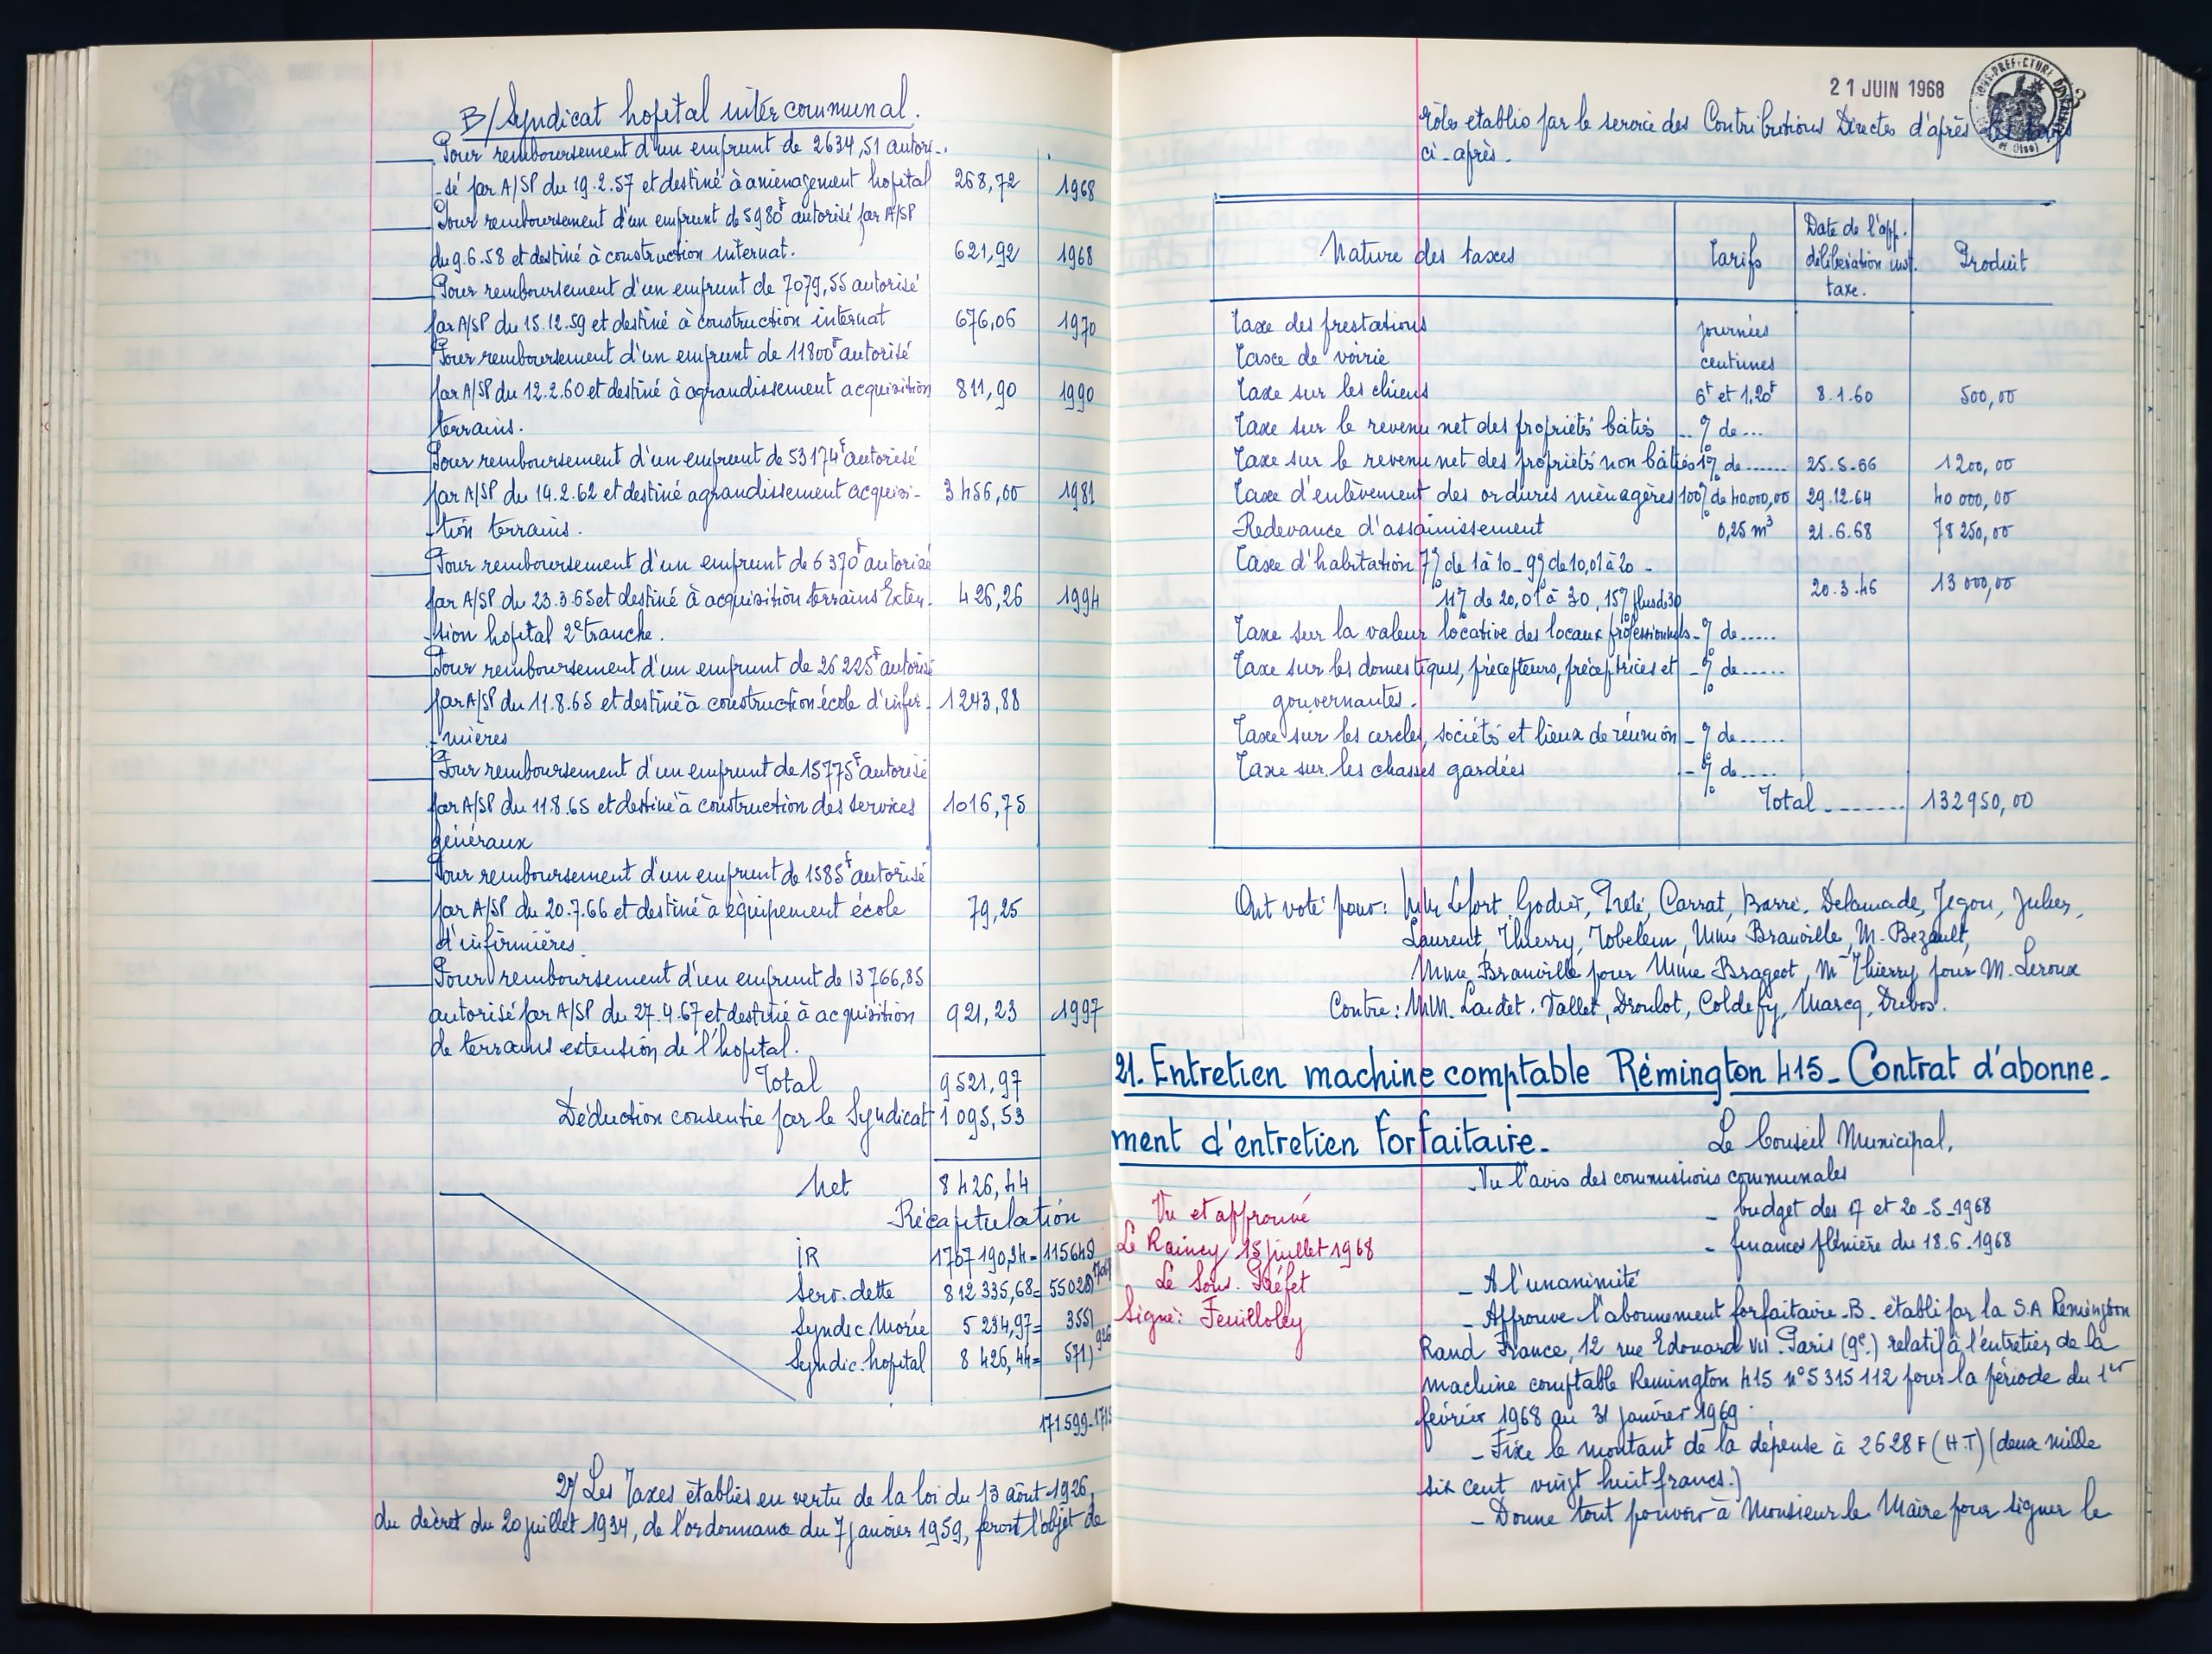 B/ Syndicat hopital intercommunal.
Pour remboursement d'un emprunt de 2634,51 autori-
-sé par A/SP du 19.2.57 et destiné à aménagement hopital 268,72 1968
Pour remboursement d'un emprunt de 5980F autorisé par A/SP
du 9.6.58 et destiné à construction internat. 621,92 1968
Pour remboursement d'un emprunt de 7079,55 autorisé
par A/SP du 15.12.59 et destiné à construction internat 676,06 1970
Pour remboursement d'un emprunt de 11800F autorisé
par A/SP du 12.2.60 et destiné à agrandissement acquisition 811,90 1990
terrains.
Pour remboursement d'un emprunt de 53174F autorisé
par A/SP du 14.2.62 et destiné agrandissement acquisi- 3456,00 1981
-tion terrains.
Pour remboursement d'un emprunt de 6370F autorisé
par A/SP du 23.3.65 et destiné à acquisition terrains Exten- 426,26 1994
-sion hopital 2e tranche.
Pour remboursement d'un emprunt de 26225F autorisé
par A/SP du 11.8.65 et destiné à construction école d'infir- 1243,88
-mières
Pour remboursement d'un emprunt de 15775F autorisé
par A/SP du 11.8.65 et destiné à construction des services 1016,75
généraux
Pour remboursement d'un emprunt de 1585F autorisé
par A/SP du 20.7.66 et destiné à équipement école 79,25
d'infirmières.
Pour remboursement d'un emprunt de 13766,85
autorisé par A/SP du 27.4.67 et destiné à acquisition 921,23 1997
de terrains extension de l'hopital.
Total 9521,97
Déduction consentie par le Syndicat 1095,53
Net 8426,44
Récapitulation
IR 1707190,34= 115649
Serv. dette 812335,68= 55028)
Syndic. Morée 5234,97= 355)
Syndic. hopital 8426,44= 571) 926
171.599-171
2°/ Les Taxes établies en vertu de la loi du 13 août 1926,
du décret du 20 juillet 1934, de l'ordonnance du 7 janvier 1959, feront l'objet de
21 JUIN 1968
rôles etablis par le service des Contributions Directes d'après
ci-après.
Nature des taxes Tarifs Date de l'app. délibération inst. taxe. Produit
Taxe des prestations journées
Taxe de voirie centimes
Taxe sur les chiens 6F et 1,20F 8.1.60 500,00
Taxe sur le revenu net des propriétés bâties .. % de ...
Taxe sur le revenu net des propriétés non bâties 1% de ....... 25.5.66 1200,00
Taxe d'enlèvement des ordures ménagères 100% de 40.000,00 29.12.64 40 000,00
Redevance d'assainissement 0,25 m3 21.6.68 78 250,00
Taxe d'habitation 7% de 1 à 10 - 9% de 10,01 à 20 -
11% de 20,01 à 30, 15% plus de 30 20.3.46 13 000,00
Taxe sur la valeur locative des locaux professionnels - % de .....
Taxe sur les domestiques, précepteurs, préceptrices et - % de .....
gouvernantes.
Taxe sur les cercles, sociétés et lieux de réunion - % de ......
Taxe sur les chasses gardées - % de .....
Total ........ 132950,00
Ont voté pour: MM. Lefort, Godier, Treté, Carrat, Barré, Delamade, Jegou, Julien,
Laurent, Thierry, Tobelem, Mme Branville, M. Bezault,
Mme Branville pour Mme Brageot, Mr Thierry pour M. Leroux
Contre: MM. Laidet, Vallet, Droulot, Coldefy, Marcq, Dubos.
21. Entretien machine comptable Rémington 415 - Contrat d'abonne-
ment d'entretien forfaitaire.
Le Conseil Municipal,
- Vu l'avis des commissions communales
- budget des 17 et 20-5-1968
- finances plénière du 18.6.1968
Vu et approuvé
Le Raincy 15 juillet 1968
Le Sous-Préfet
Signé: Feuilloley
- A l'unanimité
- Approuve l'abonnement forfaitaire -B- établi par la S.A Remington
Rand France, 12 rue Edouard VII - Paris (9e.) relatif à l'entretien de la
machine comptable Remington 415 n° 5315112 pour la période du 1er
février 1968 au 31 janvier 1969.
- Fixe le montant de la dépense à 2628F (H.T) (deux mille
six cent vingt huit francs.)
- Donne tout pouvoir à Monsieur le Maire pour signer le